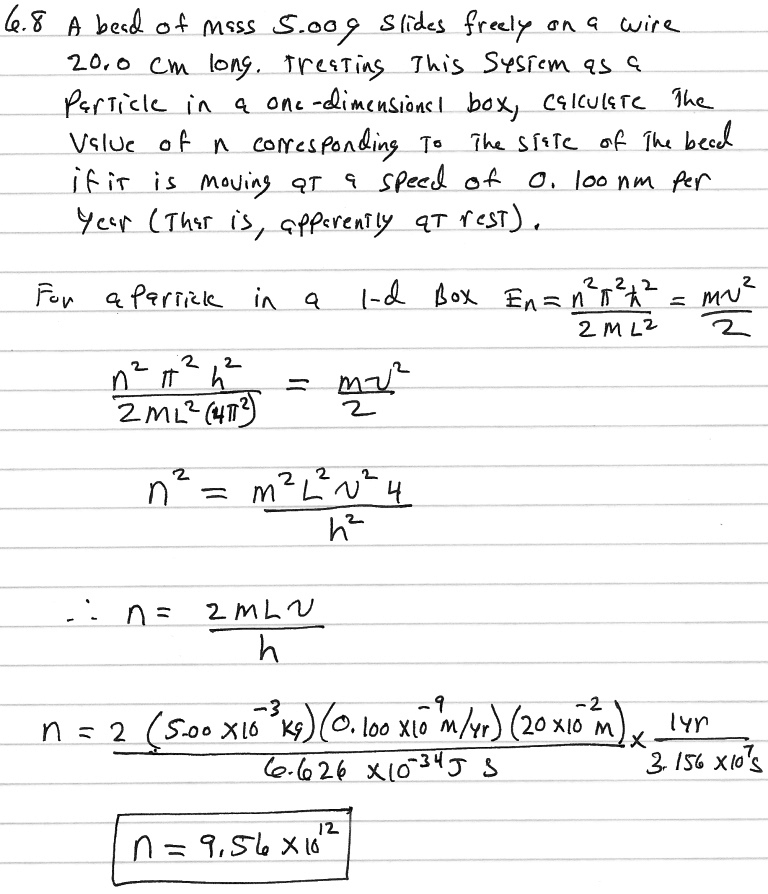 6.8 A bead of mass 5.00g slides freely on a wire
20.0 cm long. Treating This System as a
Particle in a one-dimensional box, calculate The
Value of n corresponding To The state of The bead
if it is moving at a speed of 0.100 nm per
Year (That is, apparently at rest).
For a Particle in a 1-d Box En = n²π²ħ² / 2mL² = mv² / 2
n²π²h² / 2mL²(4π²) = mv² / 2
n² = m²L²v²4 / h²
∴ n = 2mLv / h
n = 2 (5.00 x10⁻³ kg)(0.100 x10⁻⁹ m/yr)(20 x10⁻² m) / 6.626 x10⁻³⁴ J s x 1yr / 3.156 x10⁷s
n = 9.56 x 10¹²